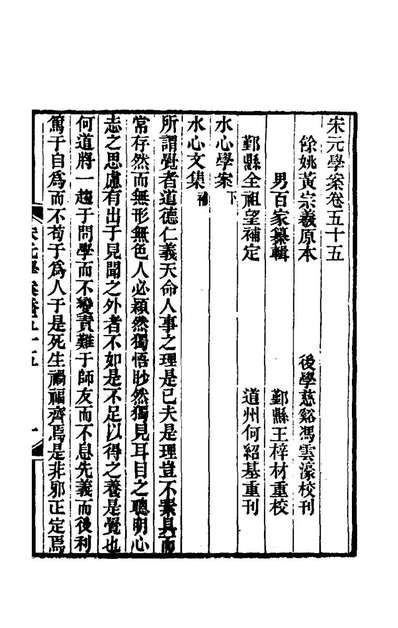 宋元學案卷五十五
餘姚黃宗羲原本
後學慈谿馮雲濠校刊
男百家纂輯
鄞縣王梓材重校
鄞縣全祖望補定
道州何紹基重刊
水心學案下
水心文集補
所謂覺者道德仁義天命人事之理是已夫是理豈不素具而
常存然而無形無色人必頴然獨悟眇然獨見耳目之聰明心
志之思慮有出于見聞之外者不如是不足以得之養是覺也
何道將一趨于問學而不變責難于師友而不息先義而後利
篤于自爲而不苟于爲人于是死生禍福齊焉是非邪正定焉
宋元學案卷五十五
一